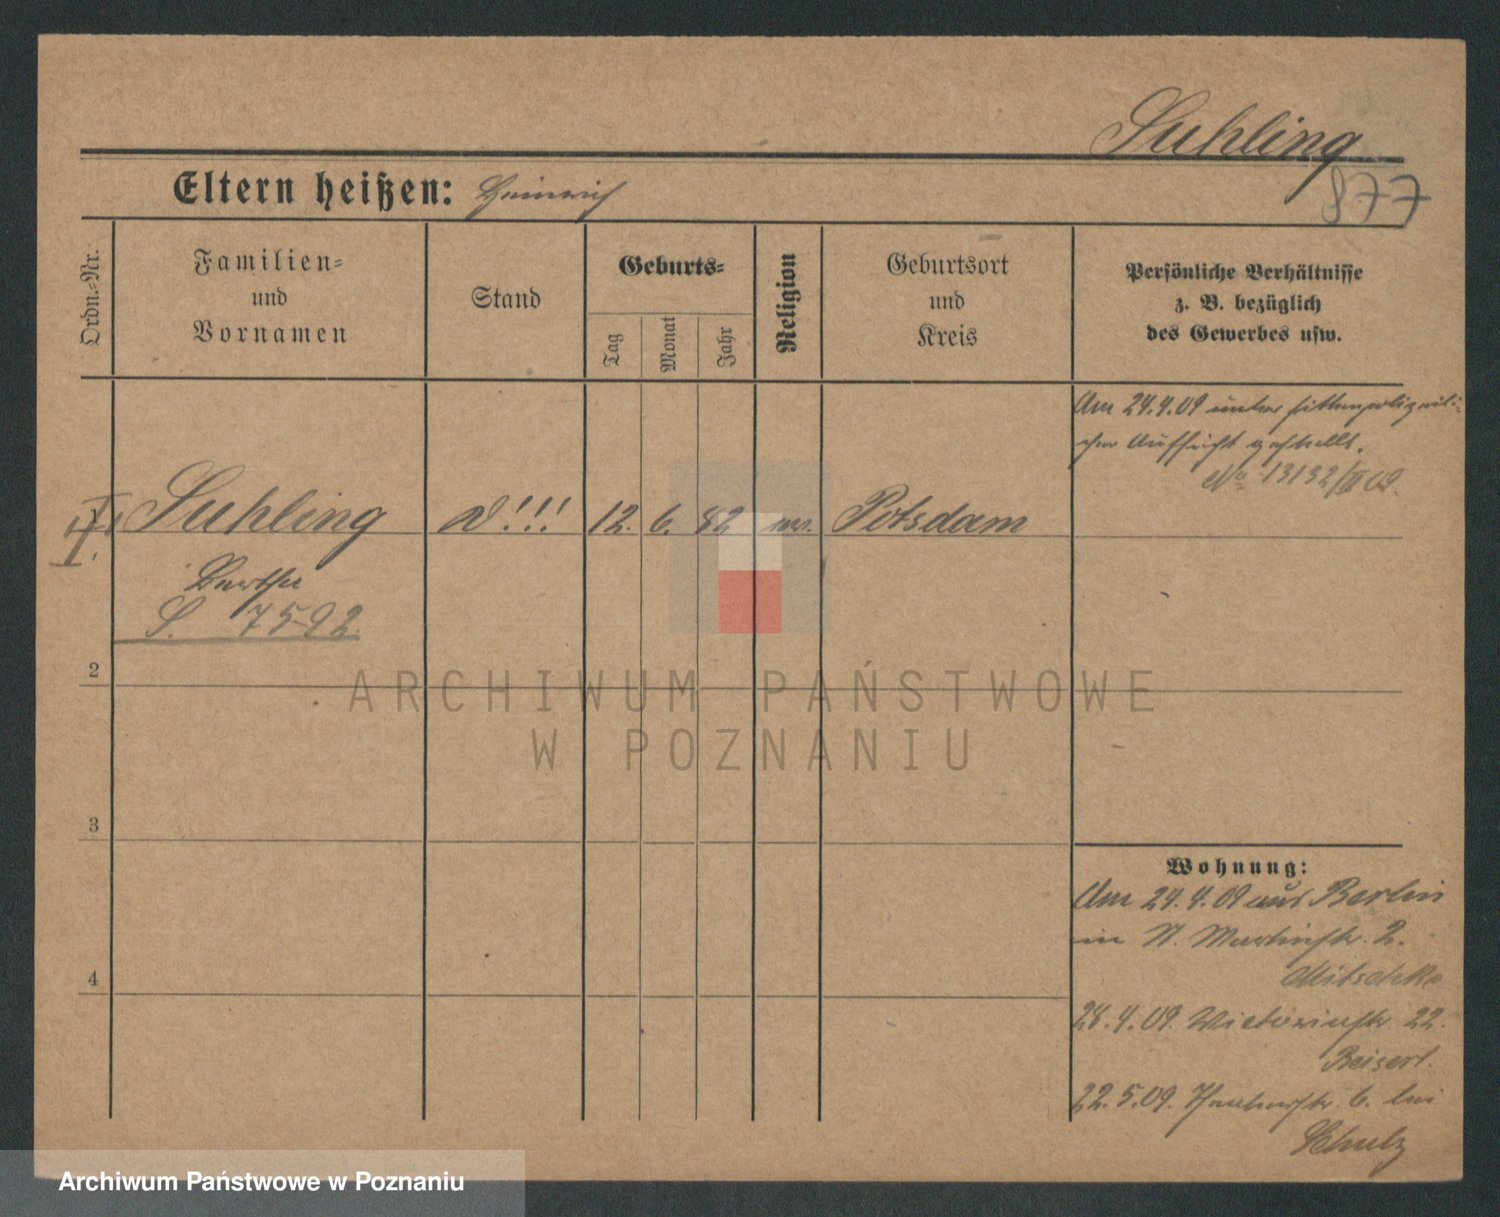 Suhling
877
Eltern heißen: Heinrich
Ordn.-Nr.
Familien-
und
Vornamen
Stand
Geburts-
Tag
Monat
Jahr
Religion
Geburtsort
und
Kreis
Persönliche Verhältnisse
z. B. bezüglich
des Gewerbes usw.
Am 24.4.09 unter sittenpolizeili-
cher Aufsicht gestellt.
No 13132/II 09.
Suhling !!! 12. 6. 82 Potsdam
Bertha
S. 7592.
2
3
4
Wohnung:
Am 24.4.09 aus Berlin
in St. Martinstr. 2.
Mitschke
28.4.09. Victoriastr. 22.
Beisert.
22.5.09. 6. bei
Schulz
ARCHIWUM PAŃSTWOWE
W POZNANIU
Archiwum Państwowe w Poznaniu